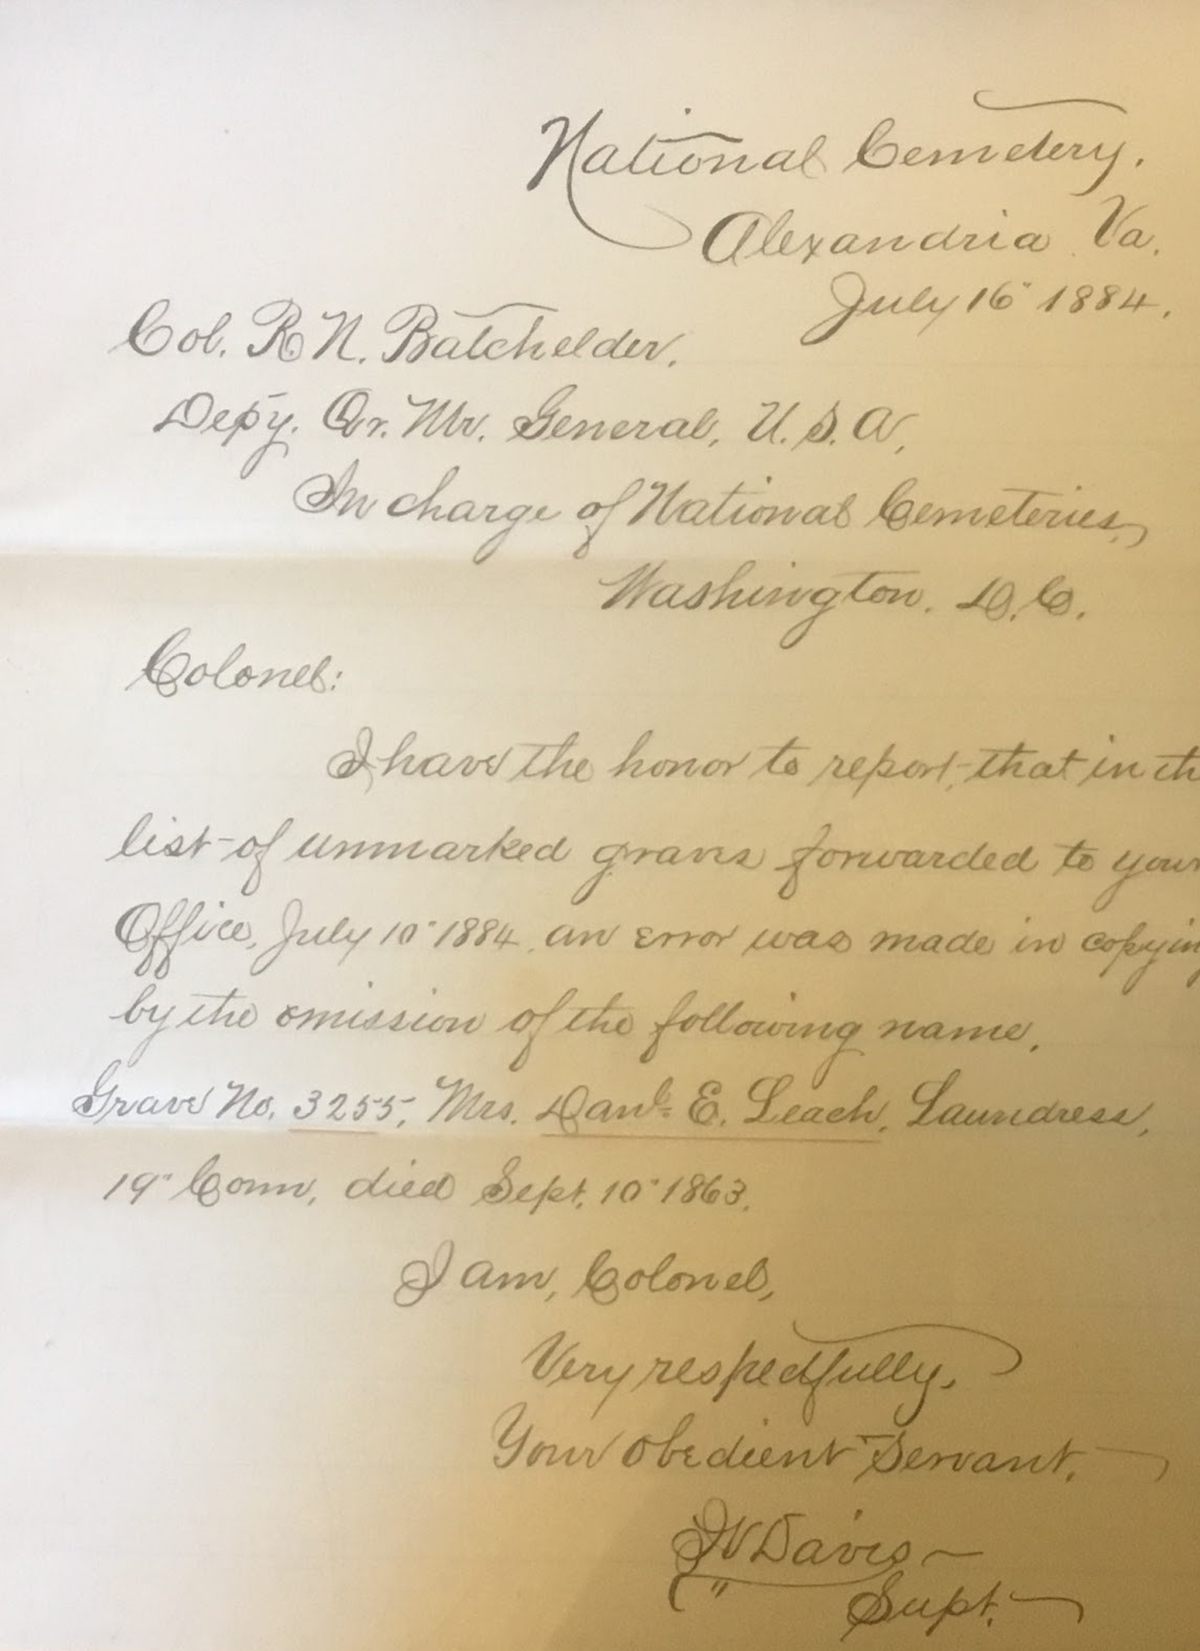 National Cemetery.
Alexandria Va.
July 16" 1884.
Col. R. N. Batchelder.
Dep'y. Qr. Mr. General, U. S. A,
In charge of National Cemeteries,
Washington. D. C.
Colonel:
I have the honor to report, that in th
list of unmarked graves forwarded to your
Office, July 10" 1884, an error was made in copyin
by the omission of the following name.
Grave No. 3255, Mrs. Danl. E. Leach, Laundress,
19" Conn, died Sept. 10" 1863.
I am, Colonel,
Very respectfully,
Your obedient Servant.
Davis
Supt.